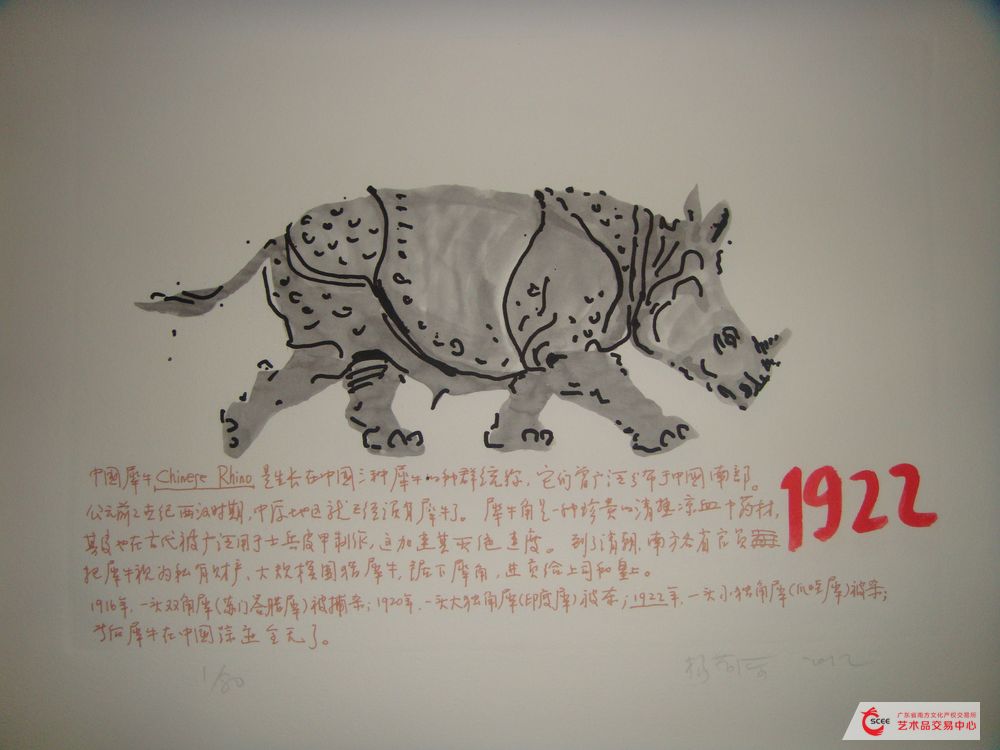 中国犀牛 Chinese Rhino 是生长在中国三种犀牛的种群统称，它们曾广泛分布于中国南部。
公元前2世纪西汉时期，中原地区就已经没有犀牛了。犀牛角是一种珍贵的清热凉血中药材，
其皮也在古代被广泛用于士兵皮甲制作，这加速其灭绝速度。到了清朝，南方各省官员
把犀牛视为私有财产、大规模围猎犀牛，锯下犀角，进贡给上司和皇上。
1916年，一头双角犀(苏门答腊犀)被捕杀；1920年，一头大独角犀(印度犀)被杀；1922年，一头小独角犀(爪哇犀)被杀；
今后犀牛在中国踪迹全无了。
1922
1/80
2012
SCEE
广东省南方文化产权交易所
艺术品交易中心